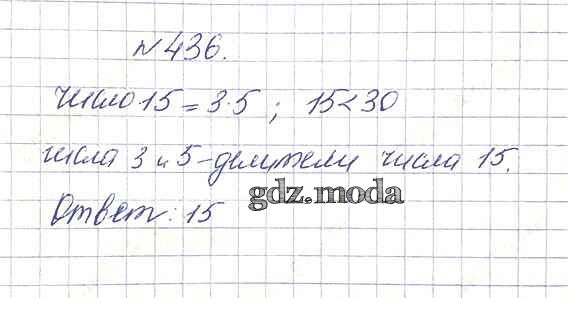 №436.
число 15 = 3·5 ; 15<30
числа 3 и 5 - делители числа 15.
gdz.moda
Ответ: 15